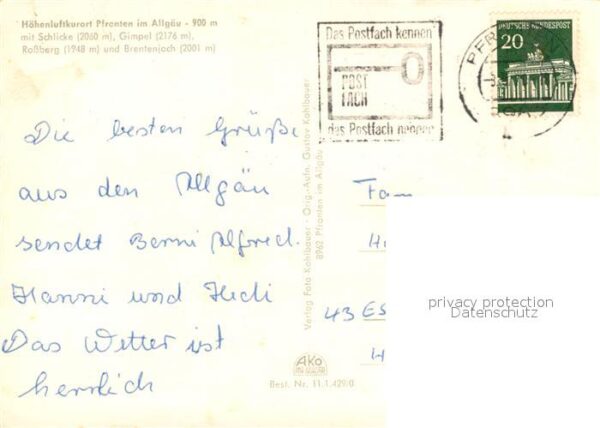 Höhenluftkurort Pfronten im Allgäu - 900 m
mit Schlicke (2060 m), Gimpel (2176 m),
Roßberg (1948 m) und Brentenjoch (2001 m)
Die besten Grüße
aus den Allgäu
sendet Berni Alfred.
Hanni und Hedi
Das Wetter ist
herrlich
Verlag Foto Kohlbauer - Orig.-Aufn. Gustav Kohlbauer
8962 Pfronten im Allgäu
AKO
Best. Nr. 11.1.429/0
Das Postfach kennen
POST
FACH
das Postfach nennen
DEUTSCHE BUNDESPOST
20
PFR
Fam
43 ES
privacy protection
Datenschutz